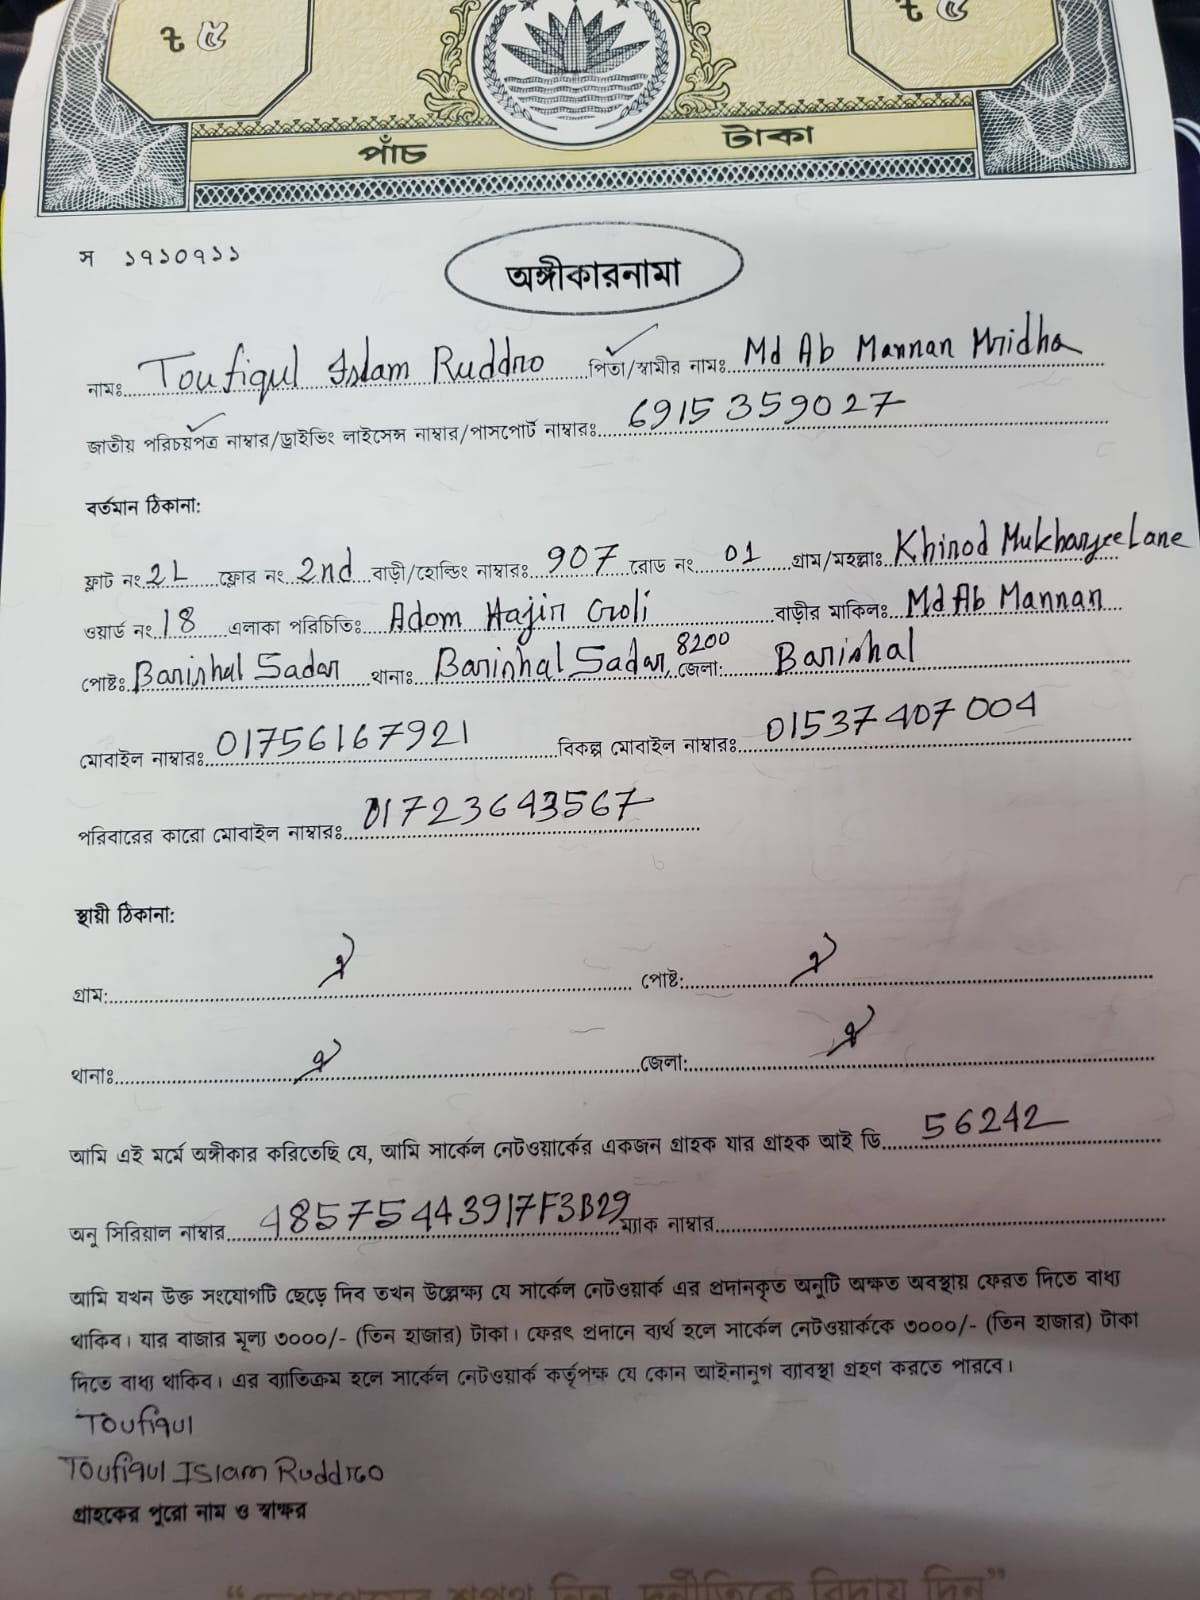 ট ৫ ট ৫
পাঁচ টাকা
স ১৭১০৭১১
অঙ্গীকারনামা
নামঃ Toufiqul Islam Ruddro পিতা/স্বামীর নামঃ Md Ab Mannan Mridha
জাতীয় পরিচয়পত্র নাম্বার/ড্রাইভিং লাইসেন্স নাম্বার/পাসপোর্ট নাম্বারঃ 6915359027
বর্তমান ঠিকানা:
ফ্লাট নং 2L ফ্লোর নং 2nd বাড়ী/হোল্ডিং নাম্বারঃ 907 রোড নং 01 গ্রাম/মহল্লাঃ Khirod Mukharjee Lane
ওয়ার্ড নং 18 এলাকা পরিচিতিঃ Adom Hajir Goli বাড়ীর মালিকঃ Md Ab Mannan
পোষ্টঃ Barishal Sadar থানাঃ Barishal Sadar, 8200 জেলা: Barishal
মোবাইল নাম্বারঃ 01756167921 বিকল্প মোবাইল নাম্বারঃ 01537407004
পরিবারের কারো মোবাইল নাম্বারঃ 01723643567
স্থায়ী ঠিকানা:
গ্রাম: ঐ পোষ্ট: ঐ
থানাঃ ঐ জেলা: ঐ
আমি এই মর্মে অঙ্গীকার করিতেছি যে, আমি সার্কেল নেটওয়ার্কের একজন গ্রাহক যার গ্রাহক আই ডি 56242
অনু সিরিয়াল নাম্বার 485754443917F3B29 ম্যাক নাম্বার
আমি যখন উক্ত সংযোগটি ছেড়ে দিব তখন উল্লেক্ষ্য যে সার্কেল নেটওয়ার্ক এর প্রদানকৃত অনুটি অক্ষত অবস্থায় ফেরত দিতে বাধ্য
থাকিব। যার বাজার মূল্য ৩০০০/- (তিন হাজার) টাকা। ফেরৎ প্রদানে ব্যর্থ হলে সার্কেল নেটওয়ার্ককে ৩০০০/- (তিন হাজার) টাকা
দিতে বাধ্য থাকিব। এর ব্যাতিক্রম হলে সার্কেল নেটওয়ার্ক কর্তৃপক্ষ যে কোন আইনানুগ ব্যাবস্থা গ্রহণ করতে পারবে।
Toufiqul
Toufiqul Islam Ruddro
গ্রাহকের পুরো নাম ও স্বাক্ষর
শপথ নিন, দুর্নীতিকে বিদায় দিন”